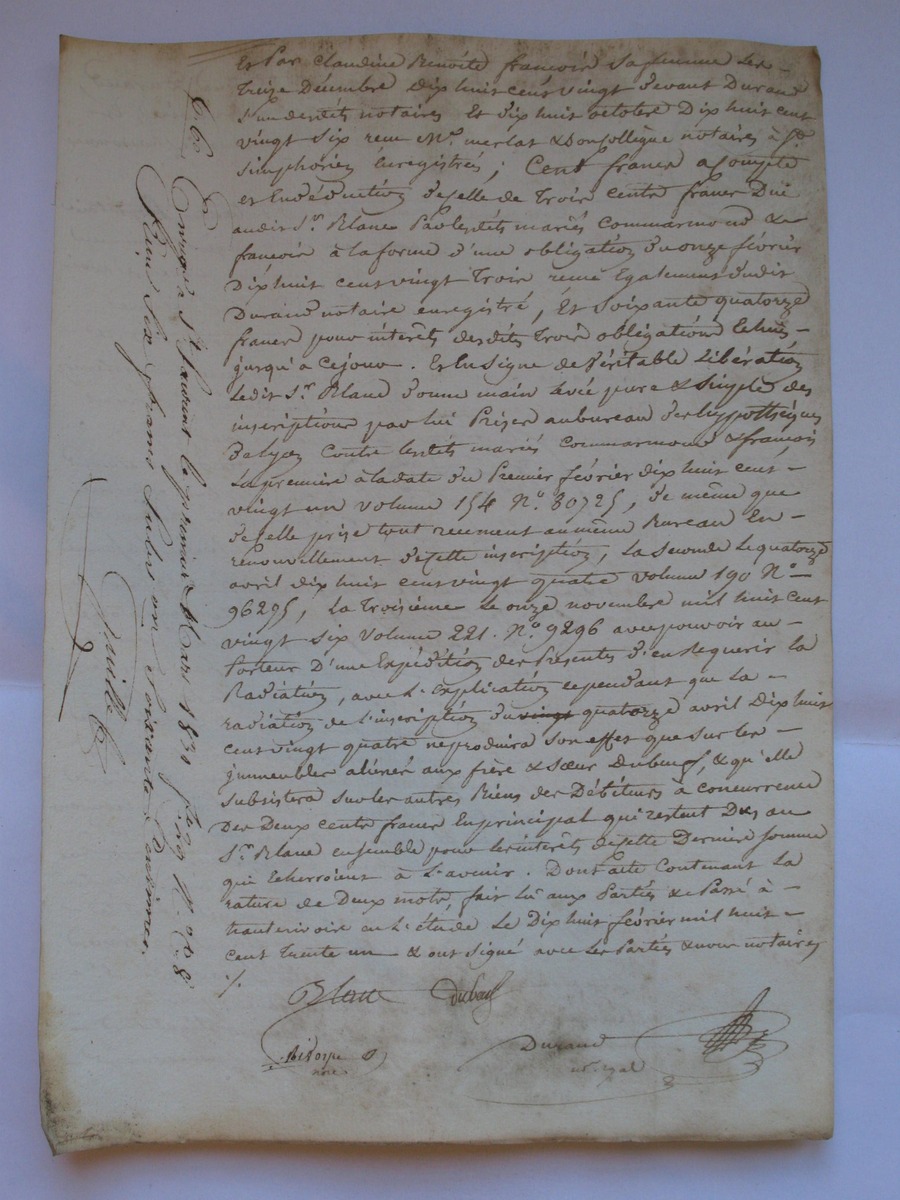 Et Par Claudine Benoite françois sa femme Les
Treize Décembre Dix huit cent vingt devant Durand
L'un desdits notaires Et Dix huit octobre Dix huit cent
vingt Six reçu Me. merlat & son Collègue notaires à St.
Simphorien Enregistrés; Cent francs acompte
et En déduction de Celle de Trois Cents francs Dûe
audit Sr. Blanc Par Lesdits mariés Commarmond &
françois à la forme d'une obligation du onze février
Dix huit cent vingt Trois reçue Egalement dudit
Durand notaire enregistré, Et Soixante quatorze
francs pour intérêts desdits Trois obligations échus
jusqu'à Ce jour. Et En Signe de Véritable Libération
Ledit Sr. Blanc Donne main Levée pure & Simple des
inscriptions par lui Prises au bureau des hypothèques
De Lyon Contre lesdits mariés Commarmond & françois
La première à la date du Premier février dix huit cent
vingt un volume 154 No. 30725, de même que
de Celle prise tout récemment au même Bureau En
renouvellement de Cette inscription, La Seconde Le quatorze
avril dix huit cent vingt quatre volume 190 No.
96295, La Troisième Le onze novembre mil huit cent
vingt six Volume 221. No. 9296 avec pouvoir au
Porteur D'une Expédition des Présentes d'en Requérir la
Radiation, avec L'Explication cependant que La
radiation de L'inscription du vingt quatorze avril Dix huit
cent vingt quatre ne produira Son effet que sur les
jmmeubles aliénés aux frère & sœur Dubeuf, & qu'elle
subsistera Sur les autres Biens des Débiteurs à Concurrence
Des Deux cents francs En principal qui restent Dus au
Sr. Blanc ensemble pour les intérêts de Cette Dernière Somme
qui écherroient à L'avenir. Dont acte Contenant La
rature de Deux mots, fait lû aux Parties & Passé à
hauterivoire en L'étude Le Dix huit février mil huit
cent Trente un & ont Signé avec Les Parties & nous notaires
./.
Blanc Dubeuf
nore
Durand
nre. royal
Enregistré à St Laurent le premier Mars 1831
Reçu Six francs Subvon Soixante Centimes.